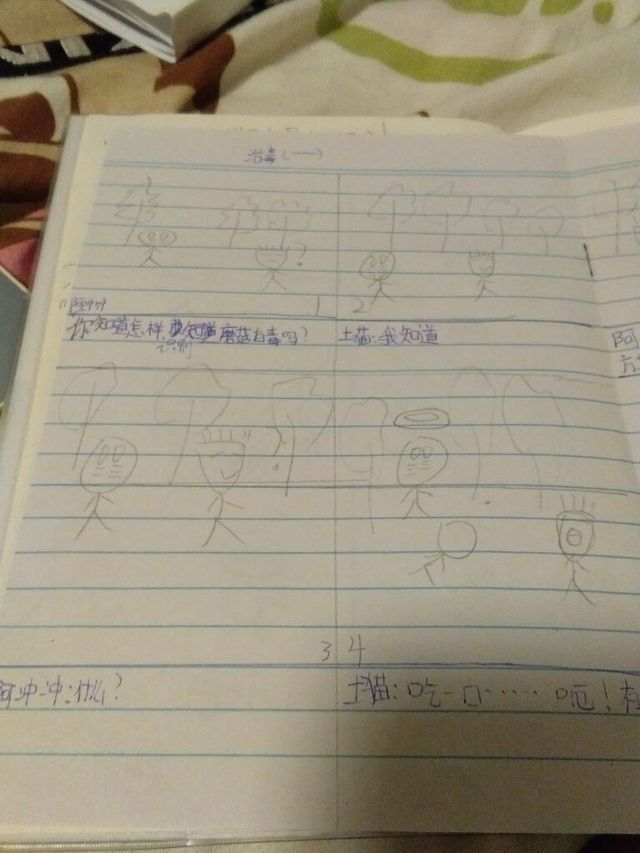 治毒(一)
?
1
2
阿冲冲
你知道怎样 磨菇有毒吗?
识别
土猫:我知道
阿
方
?
3
4
阿冲冲:什么?
土猫:吃一口…… 呃!有